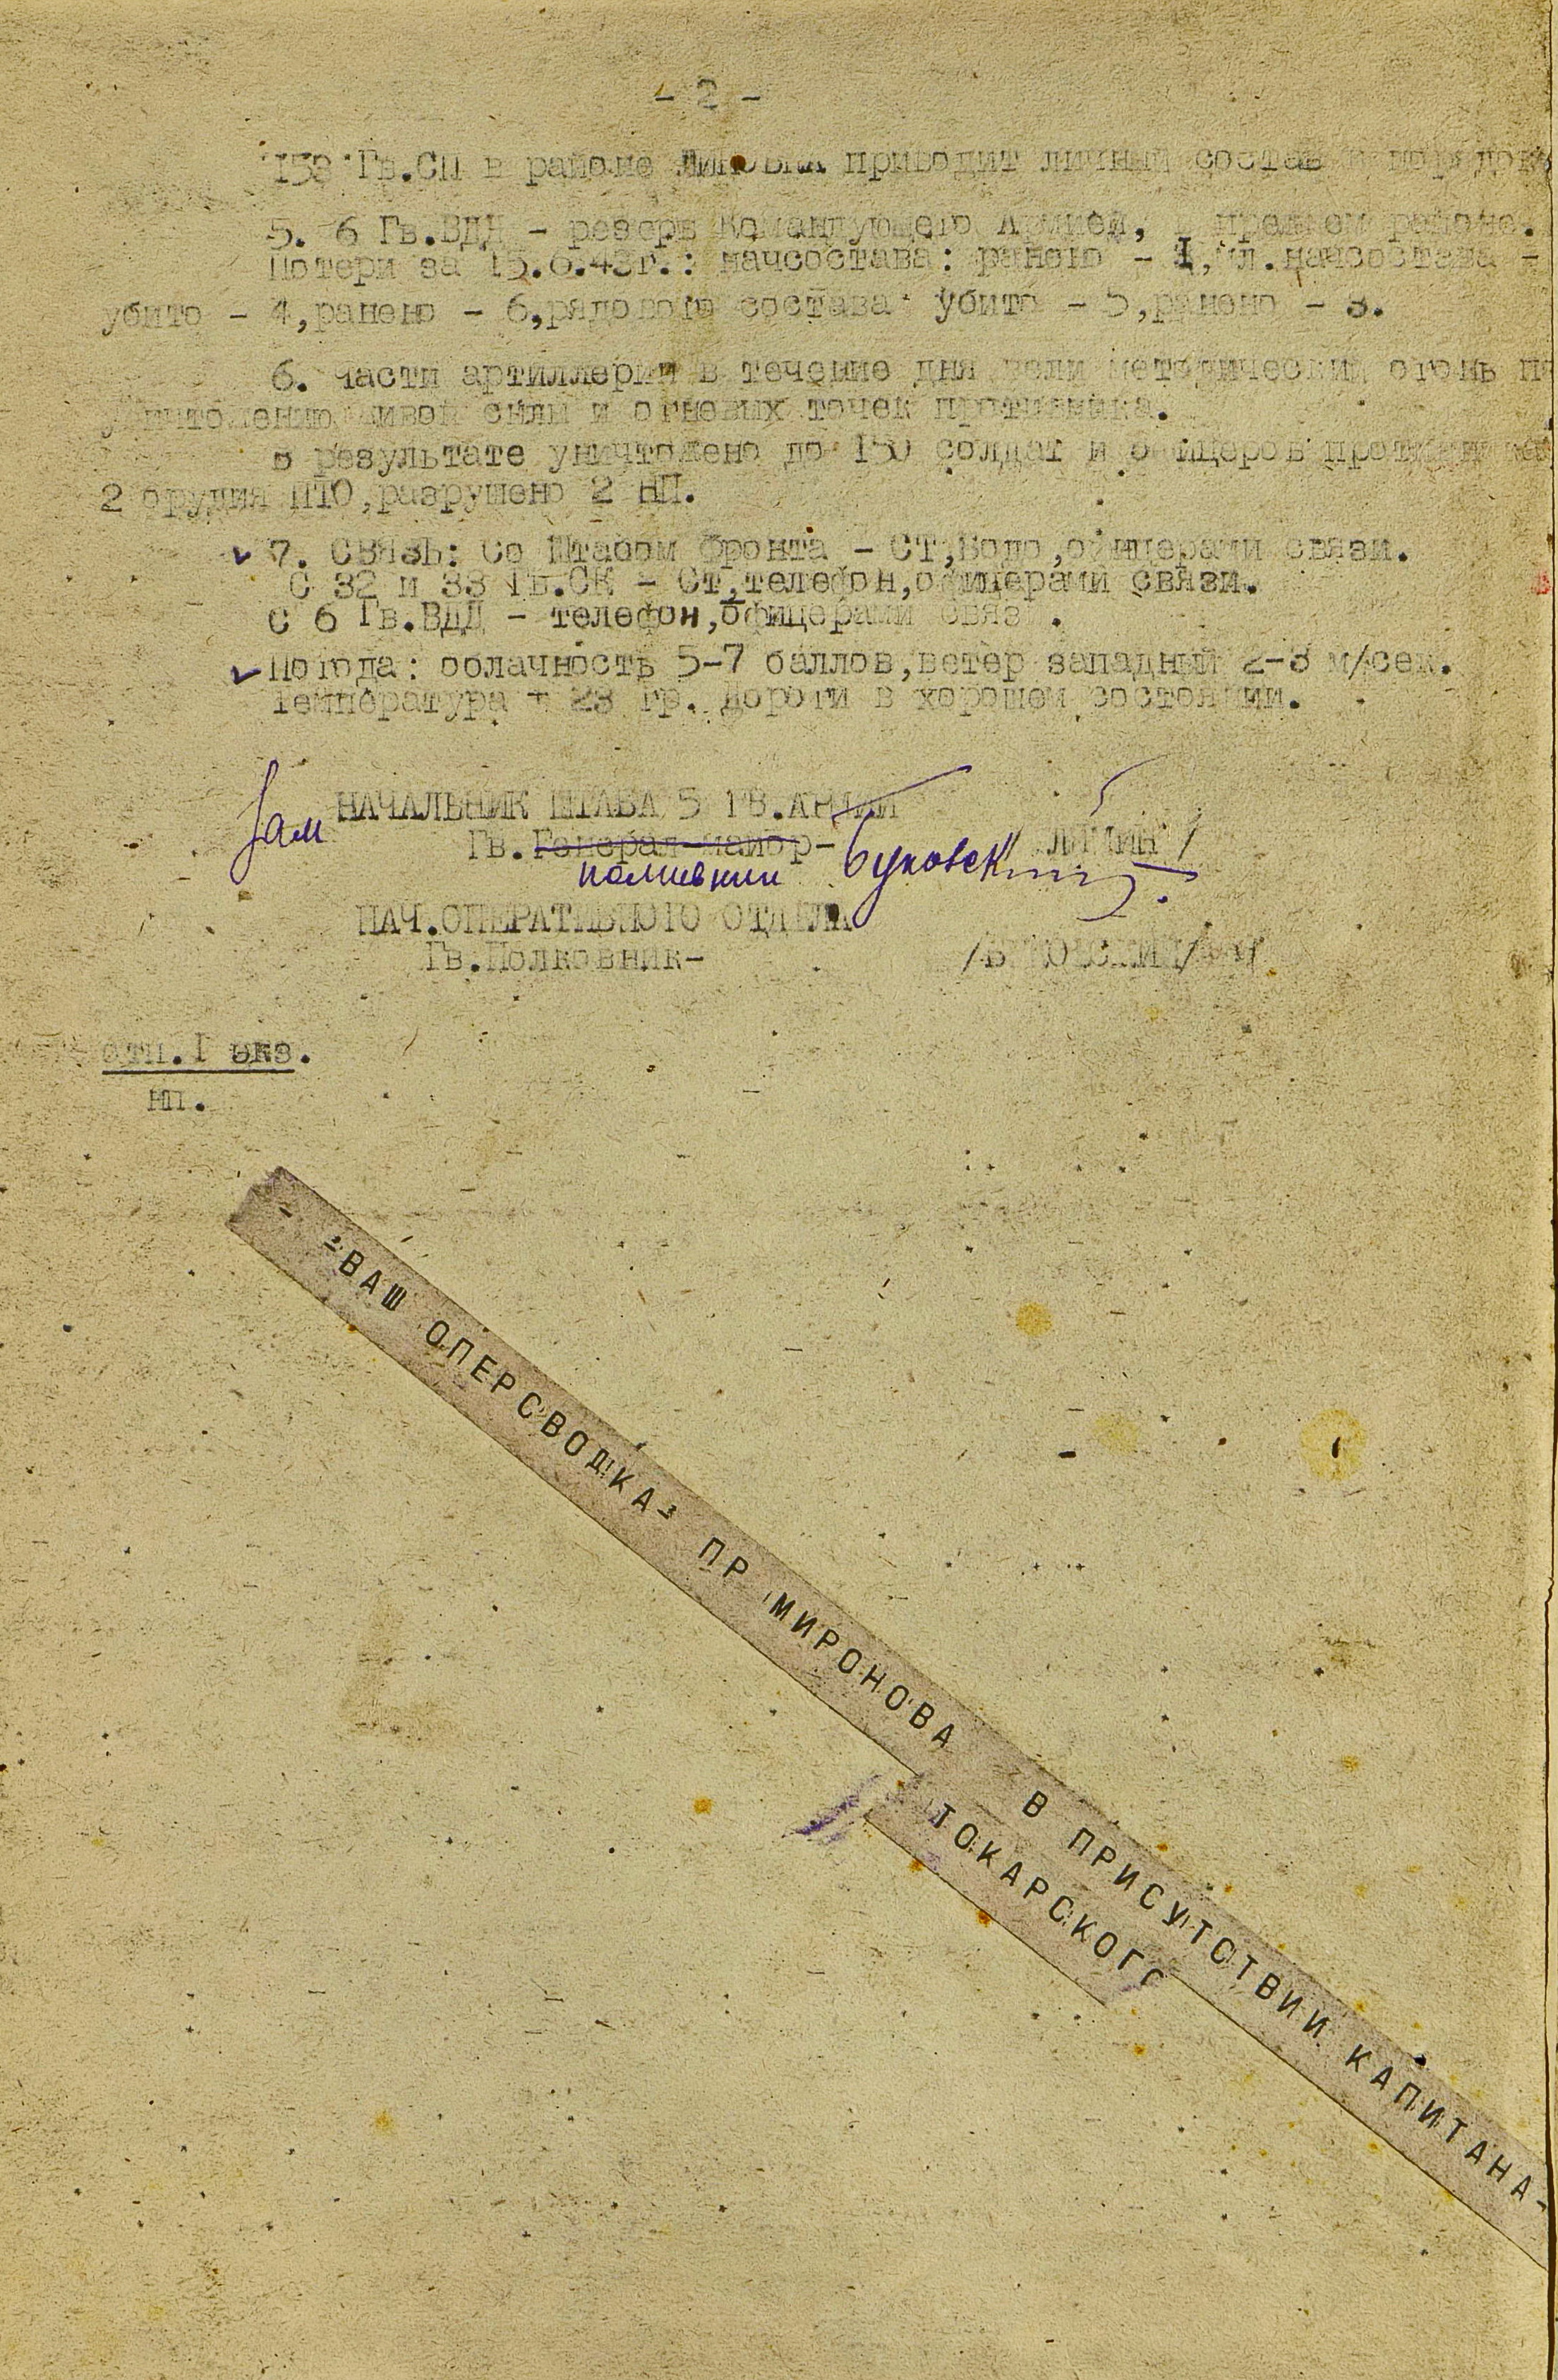 - 2 -
Гв.СП в районе приводит личный состав
5. 6 Гв.ВДД - резерв Командующего Армией, прежнем районе.
Потери за начсостава: ранено - 1, мл.начсостава -
убито - 4,ранено - 6,рядового состава убито - 5,ранено - 3.
6. части артиллерии в течение дня вели методический огонь по
уничтожению живой силы и огневых точек противника.
в результате уничтожено до 150 солдат и офицеров противника
2 орудия ПТО,разрушено 2 НП.
7. СВЯЗЬ: Со Штабом Фронта - СТ,Бодо,офицерами связи.
С 32 и 33 Гв.СК - Ст,телефон,офицерами связи.
С 6 Гв.ВДД - телефон,офицерами связ .
Погода: облачность 5-7 баллов,ветер западный 2-3 м/сек.
Температура + 23 гр. Дороги в хорошем состоянии.
Зам НАЧАЛЬНИК ШТАБА 5 ГВ.АРМИИ
Гв.Генерал-майор- ЛЯМИН/
полковник Буковский
НАЧ.ОПЕРАТИВНОГО ОТДЕЛА
Гв.Полковник- /БУКОВСКИЙ/
отп.1 экз.
нп.
-ВАШ ОПЕРСВОДКА- ПР МИРОНОВА В ПРИСУТСТВИИ КАПИТАНА-
ТОКАРСКОГО